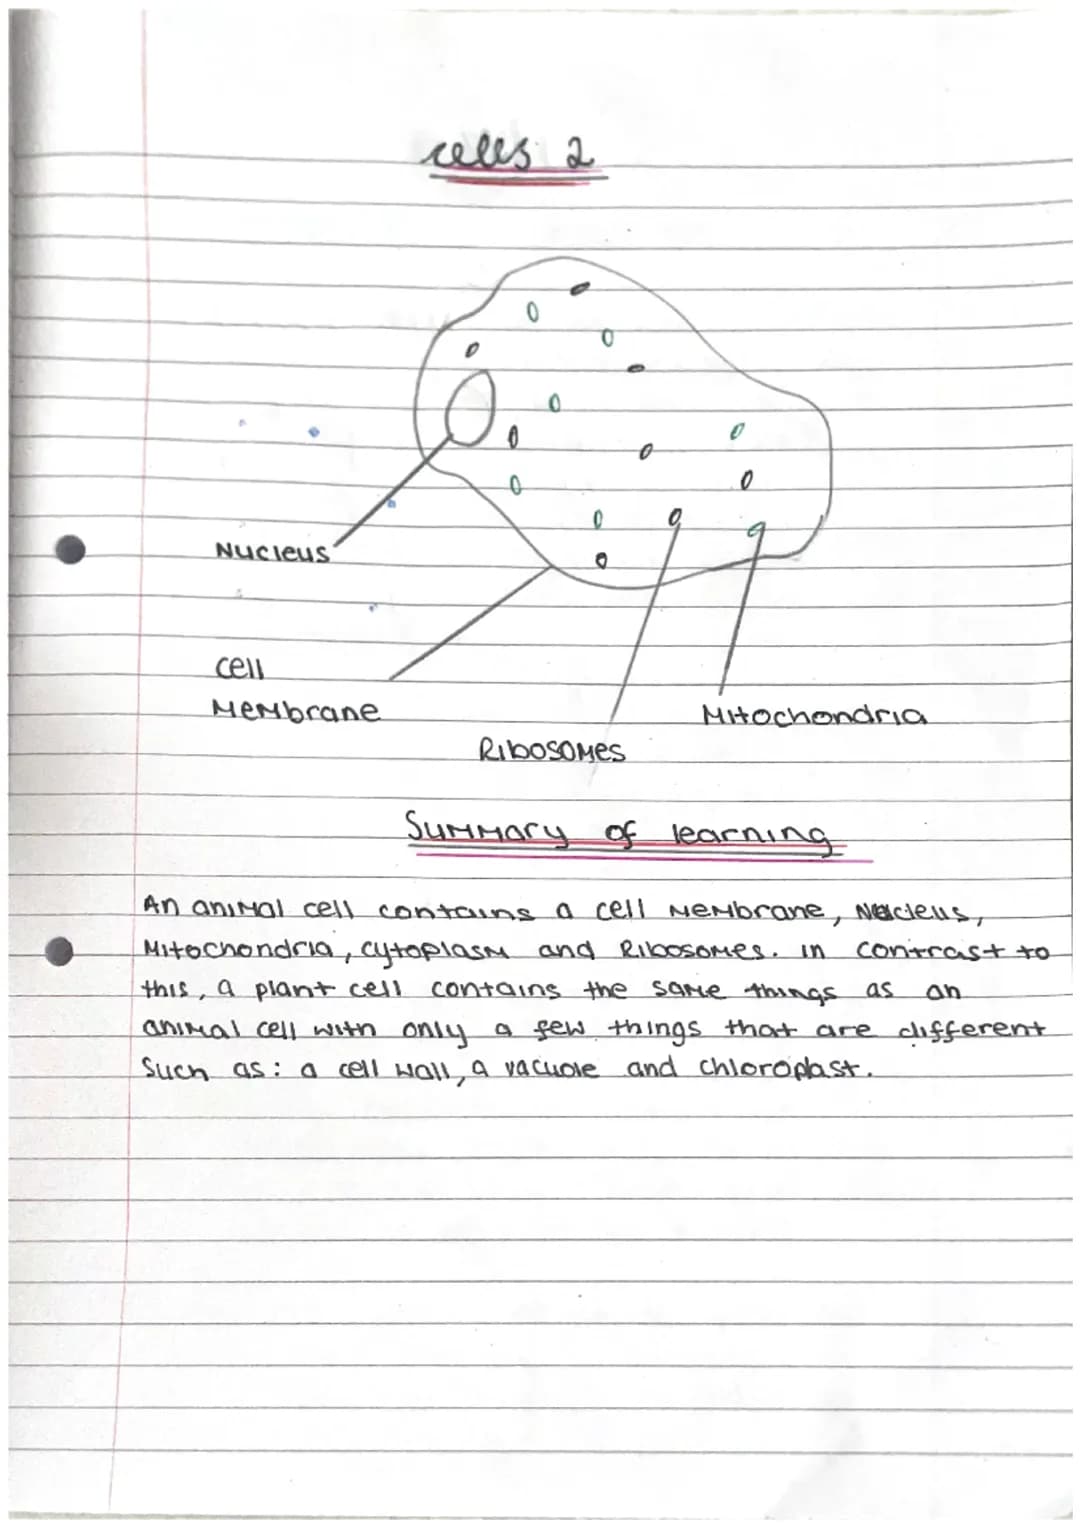 cells 2
Nucleus
cell
Membrane
Mitochondria
Ribosomes
Summary of learning
An animal cell contains a cell Membrane, Nucleus,
Mitochondria, cytoplasm and Ribosomes. in contrast to
this, a plant cell contains the same things as an
animal cell with only a few things that are different
Such as: a cell wall, a vacuole and chloroplast.